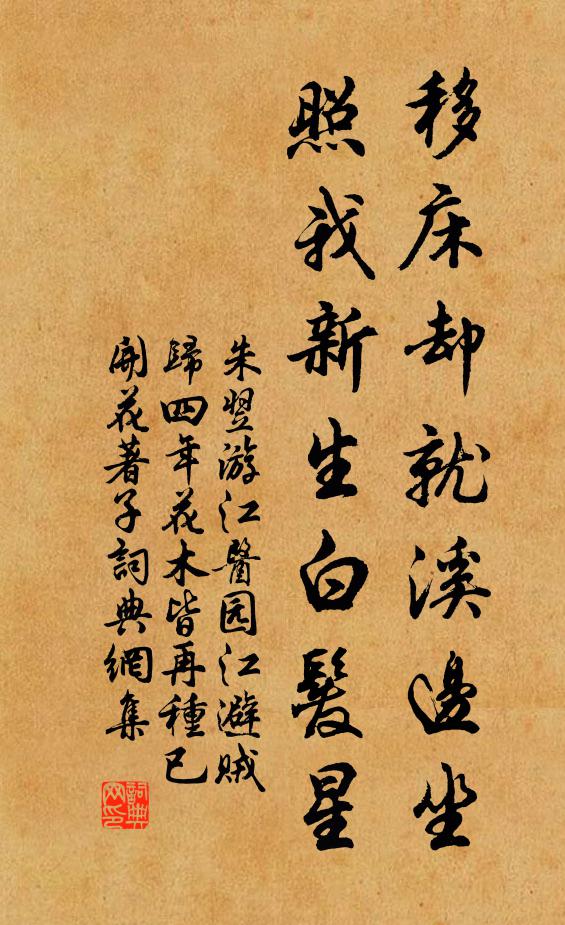 移床却就溪邊坐
照我新生白髮星
朱翌游江醫园江避賊
歸四年花木皆再種已
開花著子詞典網集
詞典网印